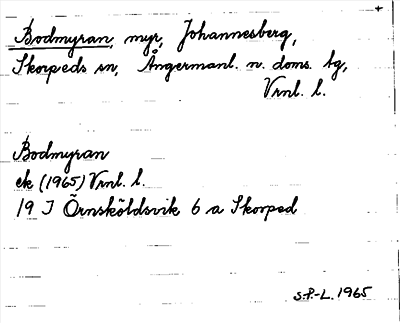 +
Bodmyran, myr, Johannesberg,
Skorpeds sn, Ångermanl. n. doms. tg,
Vrnl. l.
Bodmyran
ek (1965) Vrnl. l.
19 J Örnsköldsvik 6 a Skorped
S.P.-L. 1965